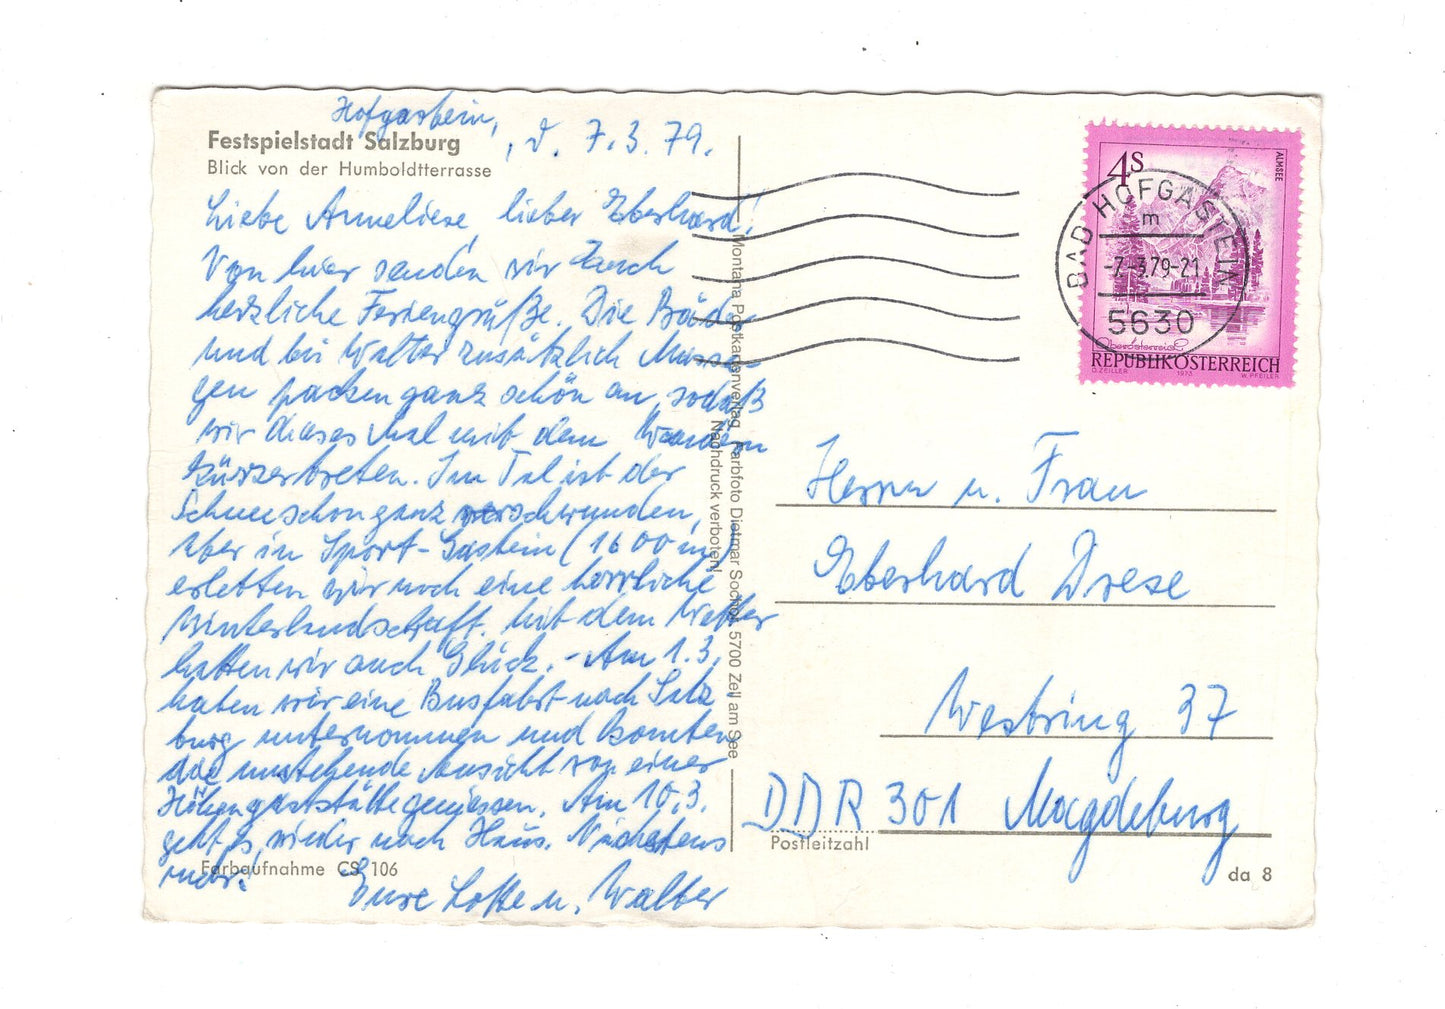 Hofgastein,
, d. 7.3.79.
Festspielstadt Salzburg
Blick von der Humboldtterrasse
Liebe Anneliese, lieber Eberhard!
Von hier senden wir Euch
herzliche Feriengrüße. Die Bäder
und bei Walter zusätzlich Massa-
gen packen ganz schön an, sodaß
wir dieses Mal mit dem Wandern
kürzertreten. Im Tal ist der
Schnee schon ganz verschwunden,
aber in Sport-Gastein (1600 m)
erlebten wir noch eine herrliche
Winterlandschaft. Mit dem Wetter
hatten wir auch Glück. - Am 1.3.
haben wir eine Busfahrt nach Salz-
burg unternommen und konnten
die umstehende Ansicht von einer
Höhengaststätte genießen. Am 10.3.
geht es wieder nach Haus. Nächstens
mehr!
Eure Lotte u. Walter
Farbaufnahme CS 106
Montana Postkartenverlag, Farbfoto Dietmar Sochor, 5700 Zell am See
Nachdruck verboten!
4S
ALMSEE
Oberösterreich
REPUBLIK ÖSTERREICH
O. ZEILLER 1973 W. PFEILER
BAD HOFGASTEIN
m
-7.-3.79-21
5630
Herrn u. Frau
Eberhard Drese
Westring 37
DDR 301 Magdeburg
Postleitzahl
da 8